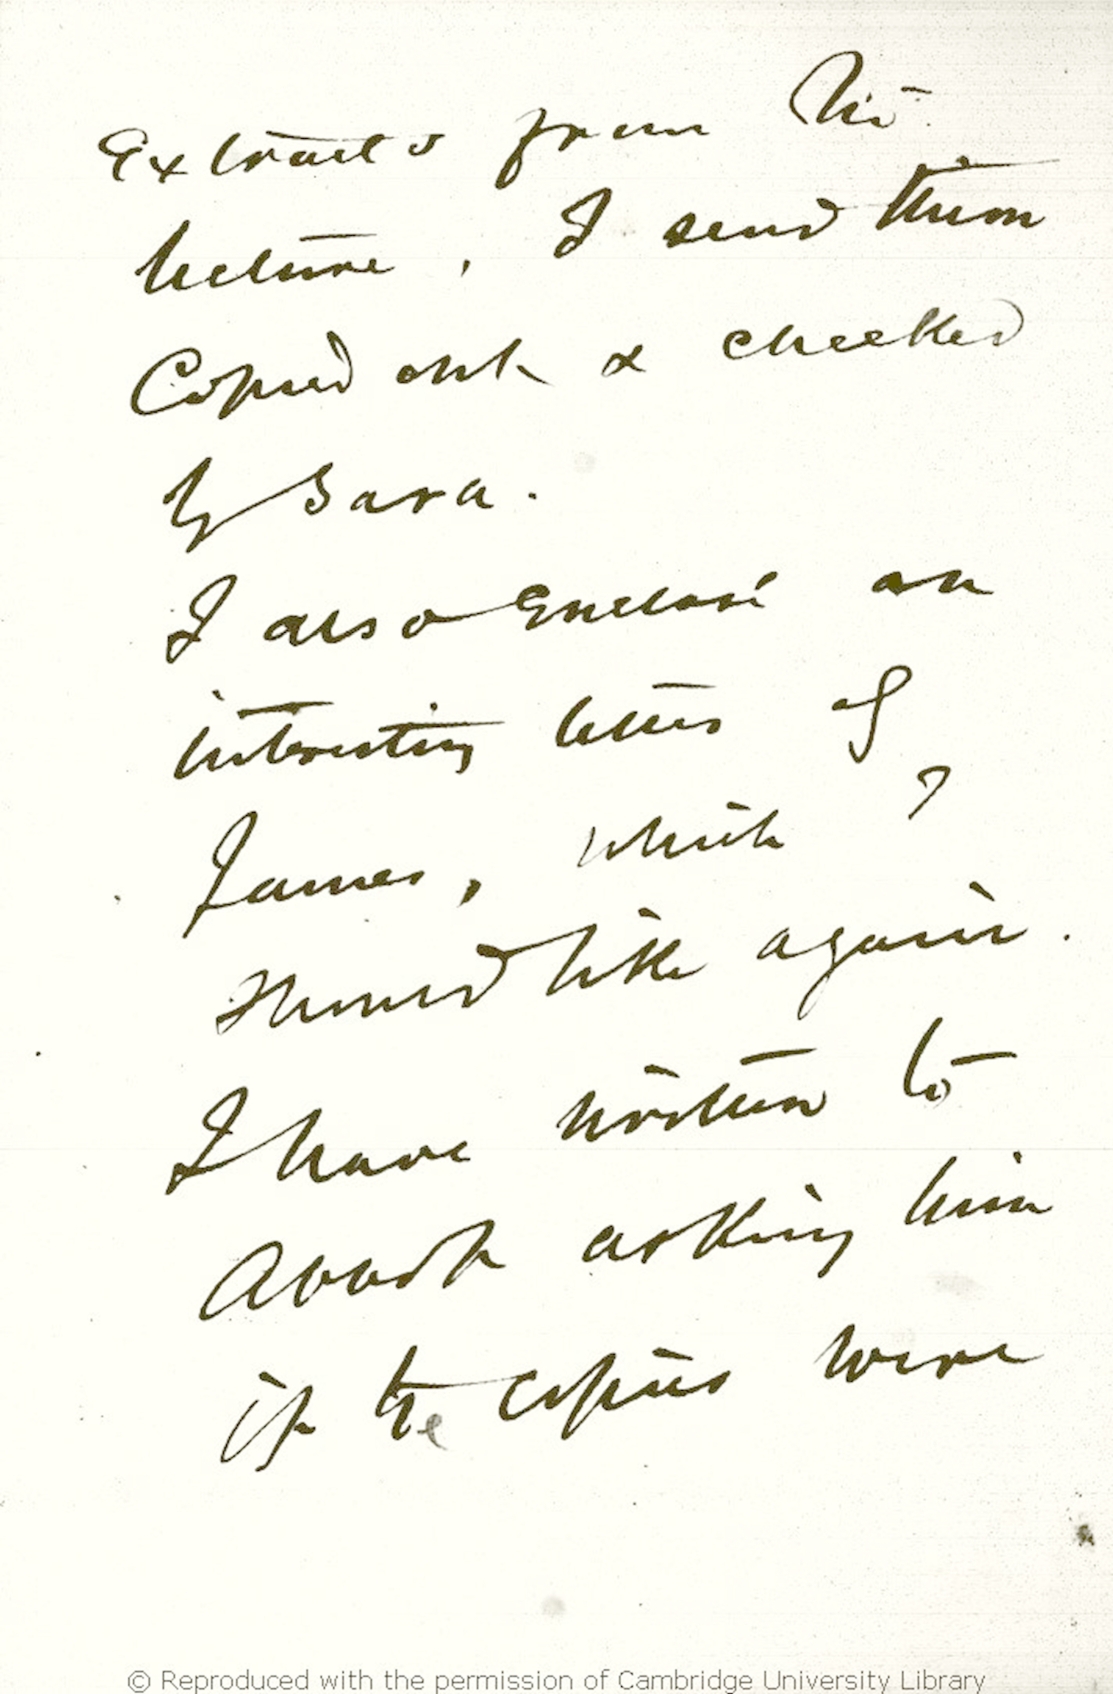 Extracts from his
lecture, I send them
Copied out & checked
by Sara.
I also enclose an
interesting letter of
James, which I
should like again.
I have written to
Abbott asking him
if the copies were
© Reproduced with the permission of Cambridge University Library